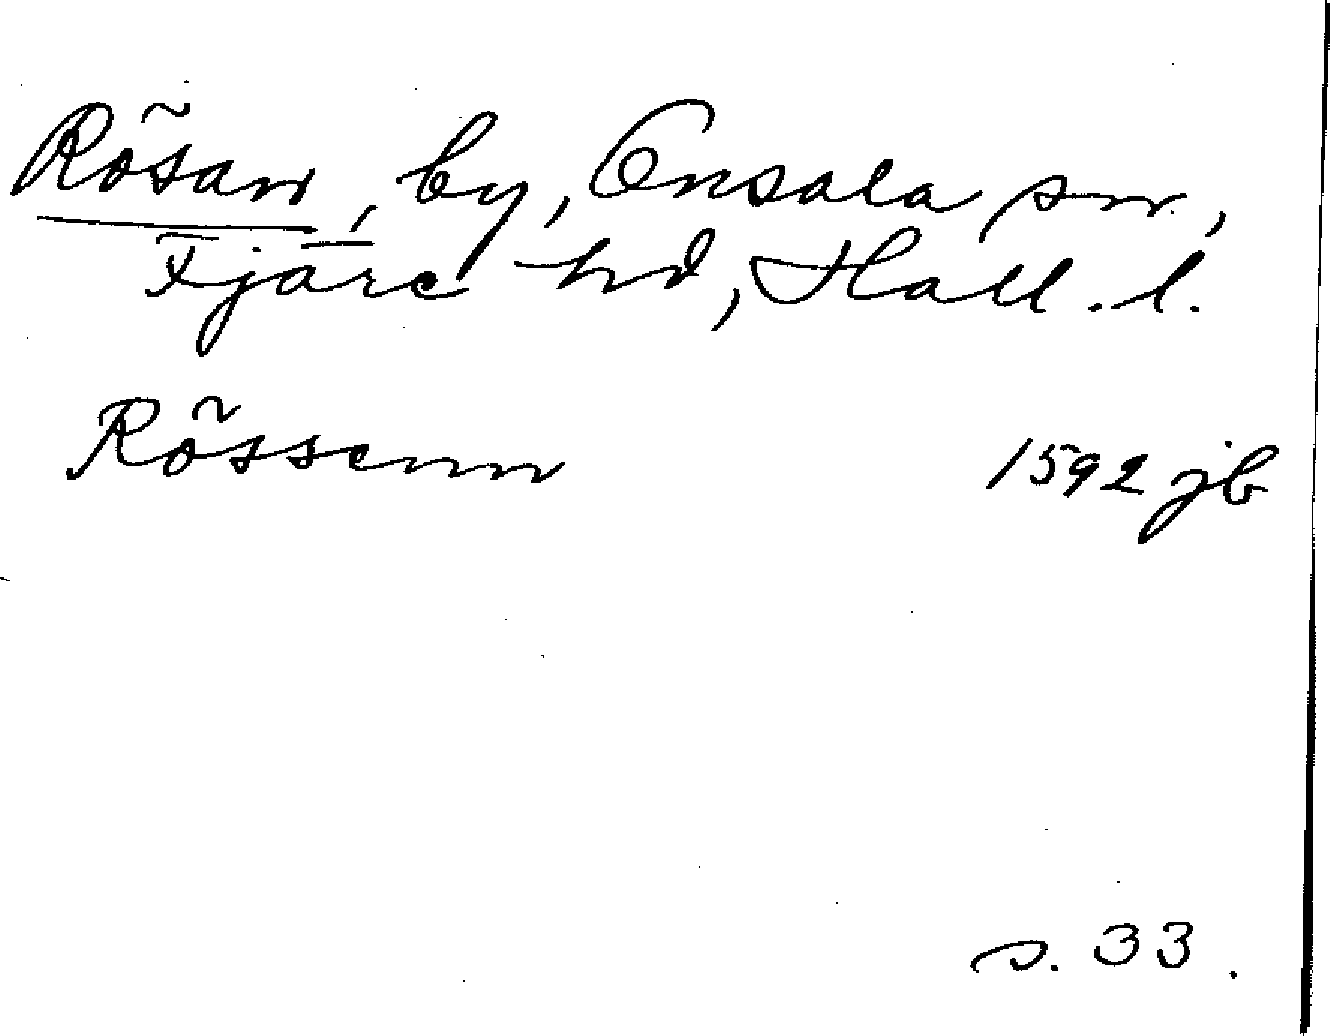 Rösan, by, Onsala sn.,
Fjäre hd, Hall. l.
Rössenn 1592 jb
s. 33.